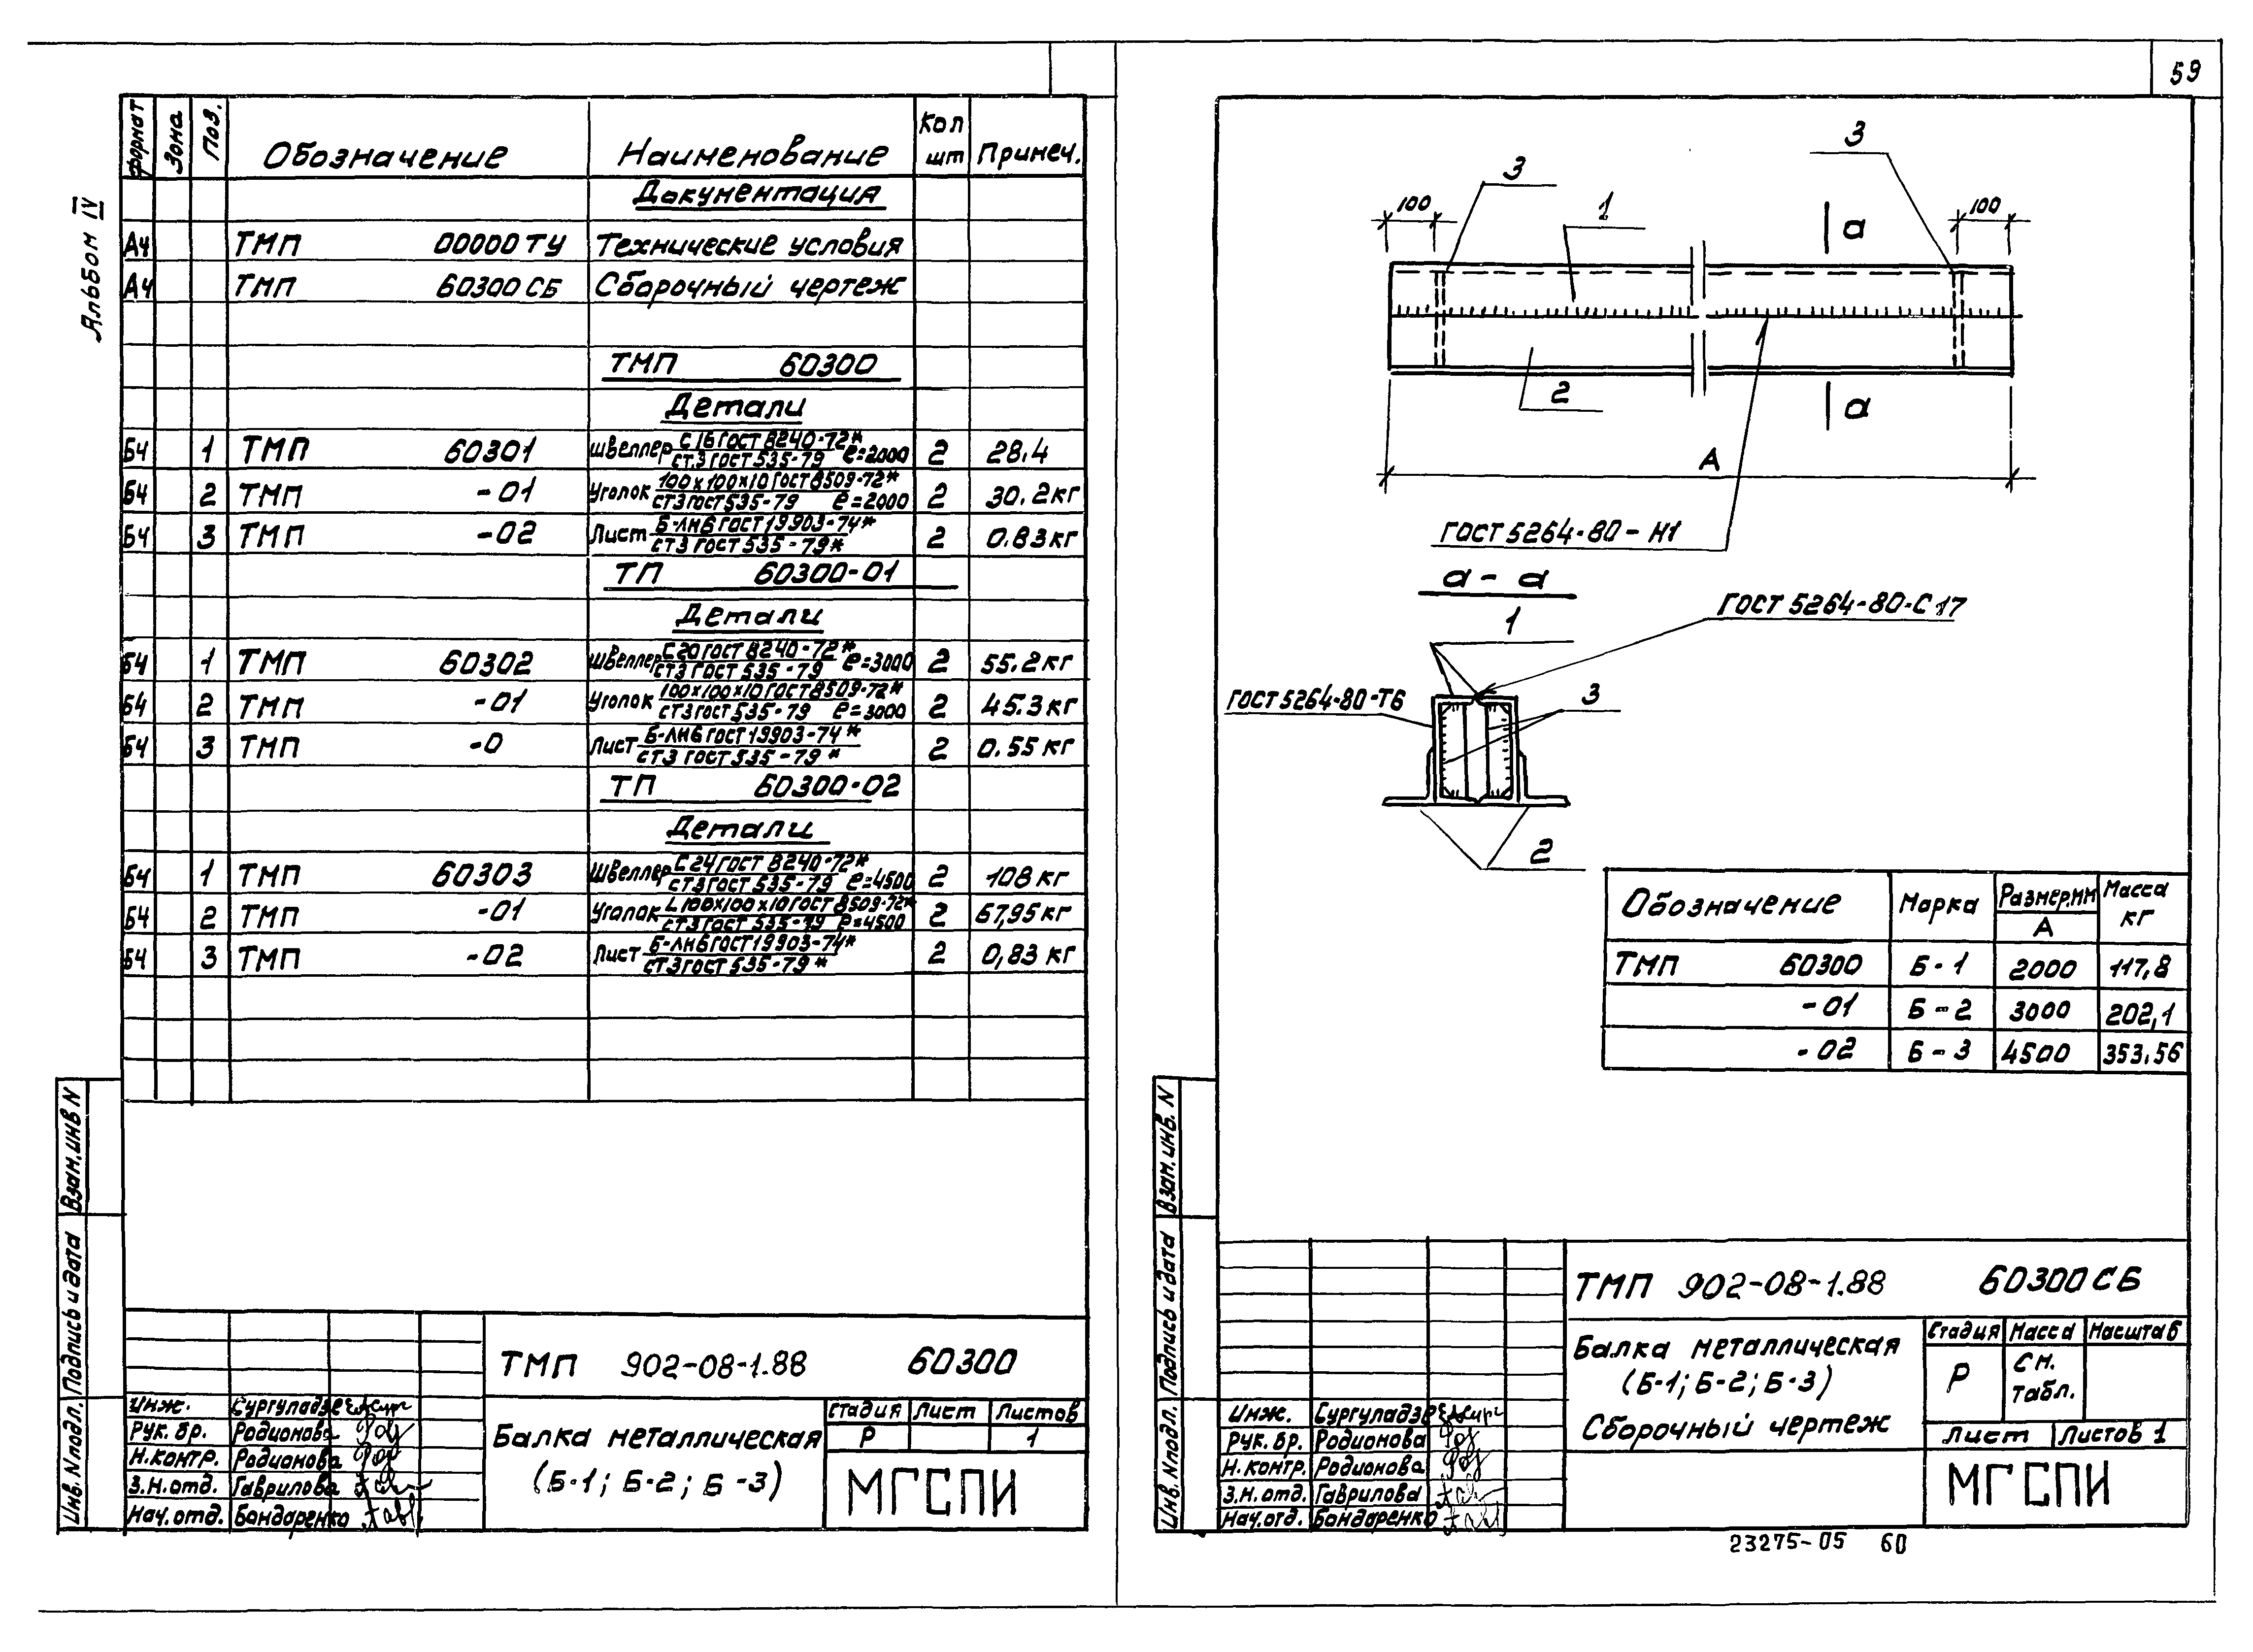 Альбом IV
формат Зона Поз. Обозначение Наименование Кол шт Примеч.
Документация
А4 ТМП 00000 ТУ Технические условия
А4 ТМП 60300 СБ Сборочный чертеж
ТМП 60300
Детали
Б4 1 ТМП 60301 Швеллер С16 ГОСТ 8240-72* / Ст.3 ГОСТ 535-79 ℓ=2000 2 28.4
Б4 2 ТМП -01 Уголок 100х100х10 ГОСТ 8509-72* / Ст3 ГОСТ 535-79 ℓ=2000 2 30.2кг
Б4 3 ТМП -02 Лист Б-ЛН6 ГОСТ 19903-74* / Ст3 ГОСТ 535-79* 2 0.83кг
ТП 60300-01
Детали
Б4 1 ТМП 60302 Швеллер С20 ГОСТ 8240-72* / Ст3 ГОСТ 535-79 ℓ=3000 2 55.2кг
Б4 2 ТМП -01 Уголок 100х100х10 ГОСТ 8509-72* / Ст3 ГОСТ 535-79 ℓ=3000 2 45.3кг
Б4 3 ТМП -0 Лист Б-ЛН6 ГОСТ 19903-74* / Ст3 ГОСТ 535-79* 2 0.55кг
ТП 60300-02
Детали
Б4 1 ТМП 60303 Швеллер С24 ГОСТ 8240-72* / Ст3 ГОСТ 535-79 ℓ=4500 2 108кг
Б4 2 ТМП -01 Уголок L100х100х10 ГОСТ 8509-72* / Ст3 ГОСТ 535-79 ℓ=4500 2 67,95кг
Б4 3 ТМП -02 Лист Б-ЛН6 ГОСТ 19903-74* / Ст3 ГОСТ 535-79* 2 0,83 кг
Взам.инв N
Подпись и дата
Инв.Nподл.
ТМП 902-08-1.88 60300
Инж. Сургуладзе
Рук. бр. Родионова
Н.контр. Родионова
З.н.отд. Гаврилова
Нач.отд. Бондаренко
Балка металлическая
(Б-1; Б-2; Б-3)
Стадия Лист Листов
Р 1
МГСПИ
59
3
3
1
100
100
а
2
а
А
ГОСТ 5264-80-Н1
а - а
ГОСТ 5264-80-С17
1
ГОСТ 5264-80-Т6
3
2
Обозначение Марка Размер,мм Масса кг
А
ТМП 60300 Б-1 2000 117,8
-01 Б-2 3000 202,1
-02 Б-3 4500 353,56
Взам.инв. N
Подпись и дата
Инв.Nподл.
ТМП 902-08-1.88 60300 СБ
Балка металлическая
(Б-1; Б-2; Б-3)
Сборочный чертеж
Стадия Масса Масштаб
Р См. табл.
Лист Листов 1
Инж. Сургуладзе
Рук. бр. Родионова
Н.контр. Родионова
З.н.отд. Гаврилова
Нач.отд. Бондаренко
МГСПИ
23275-05 60